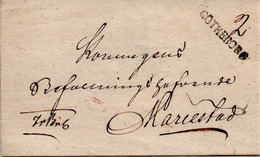 2
GÖTHEBORG
Konungens
Befallningshafvande
Mariestad